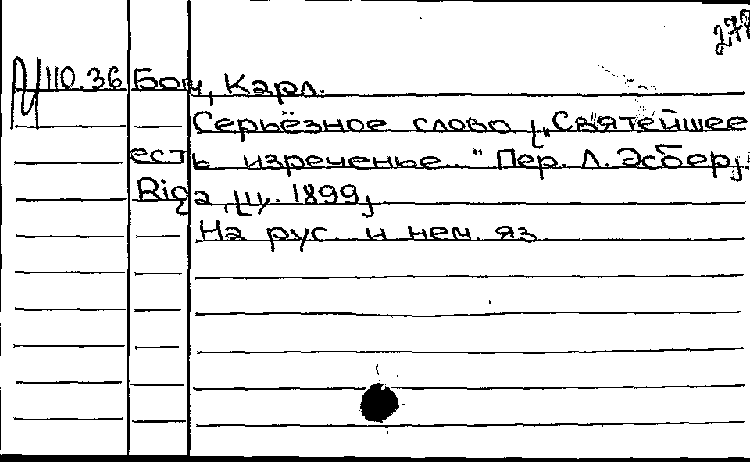 278
И110.36 Бом, Карл.
Серьёзное слово [„Святейшее
есть изреченье..." Пер. Л. Эсбер].
Riga, [ц. 1899]
На рус. и нем. яз.